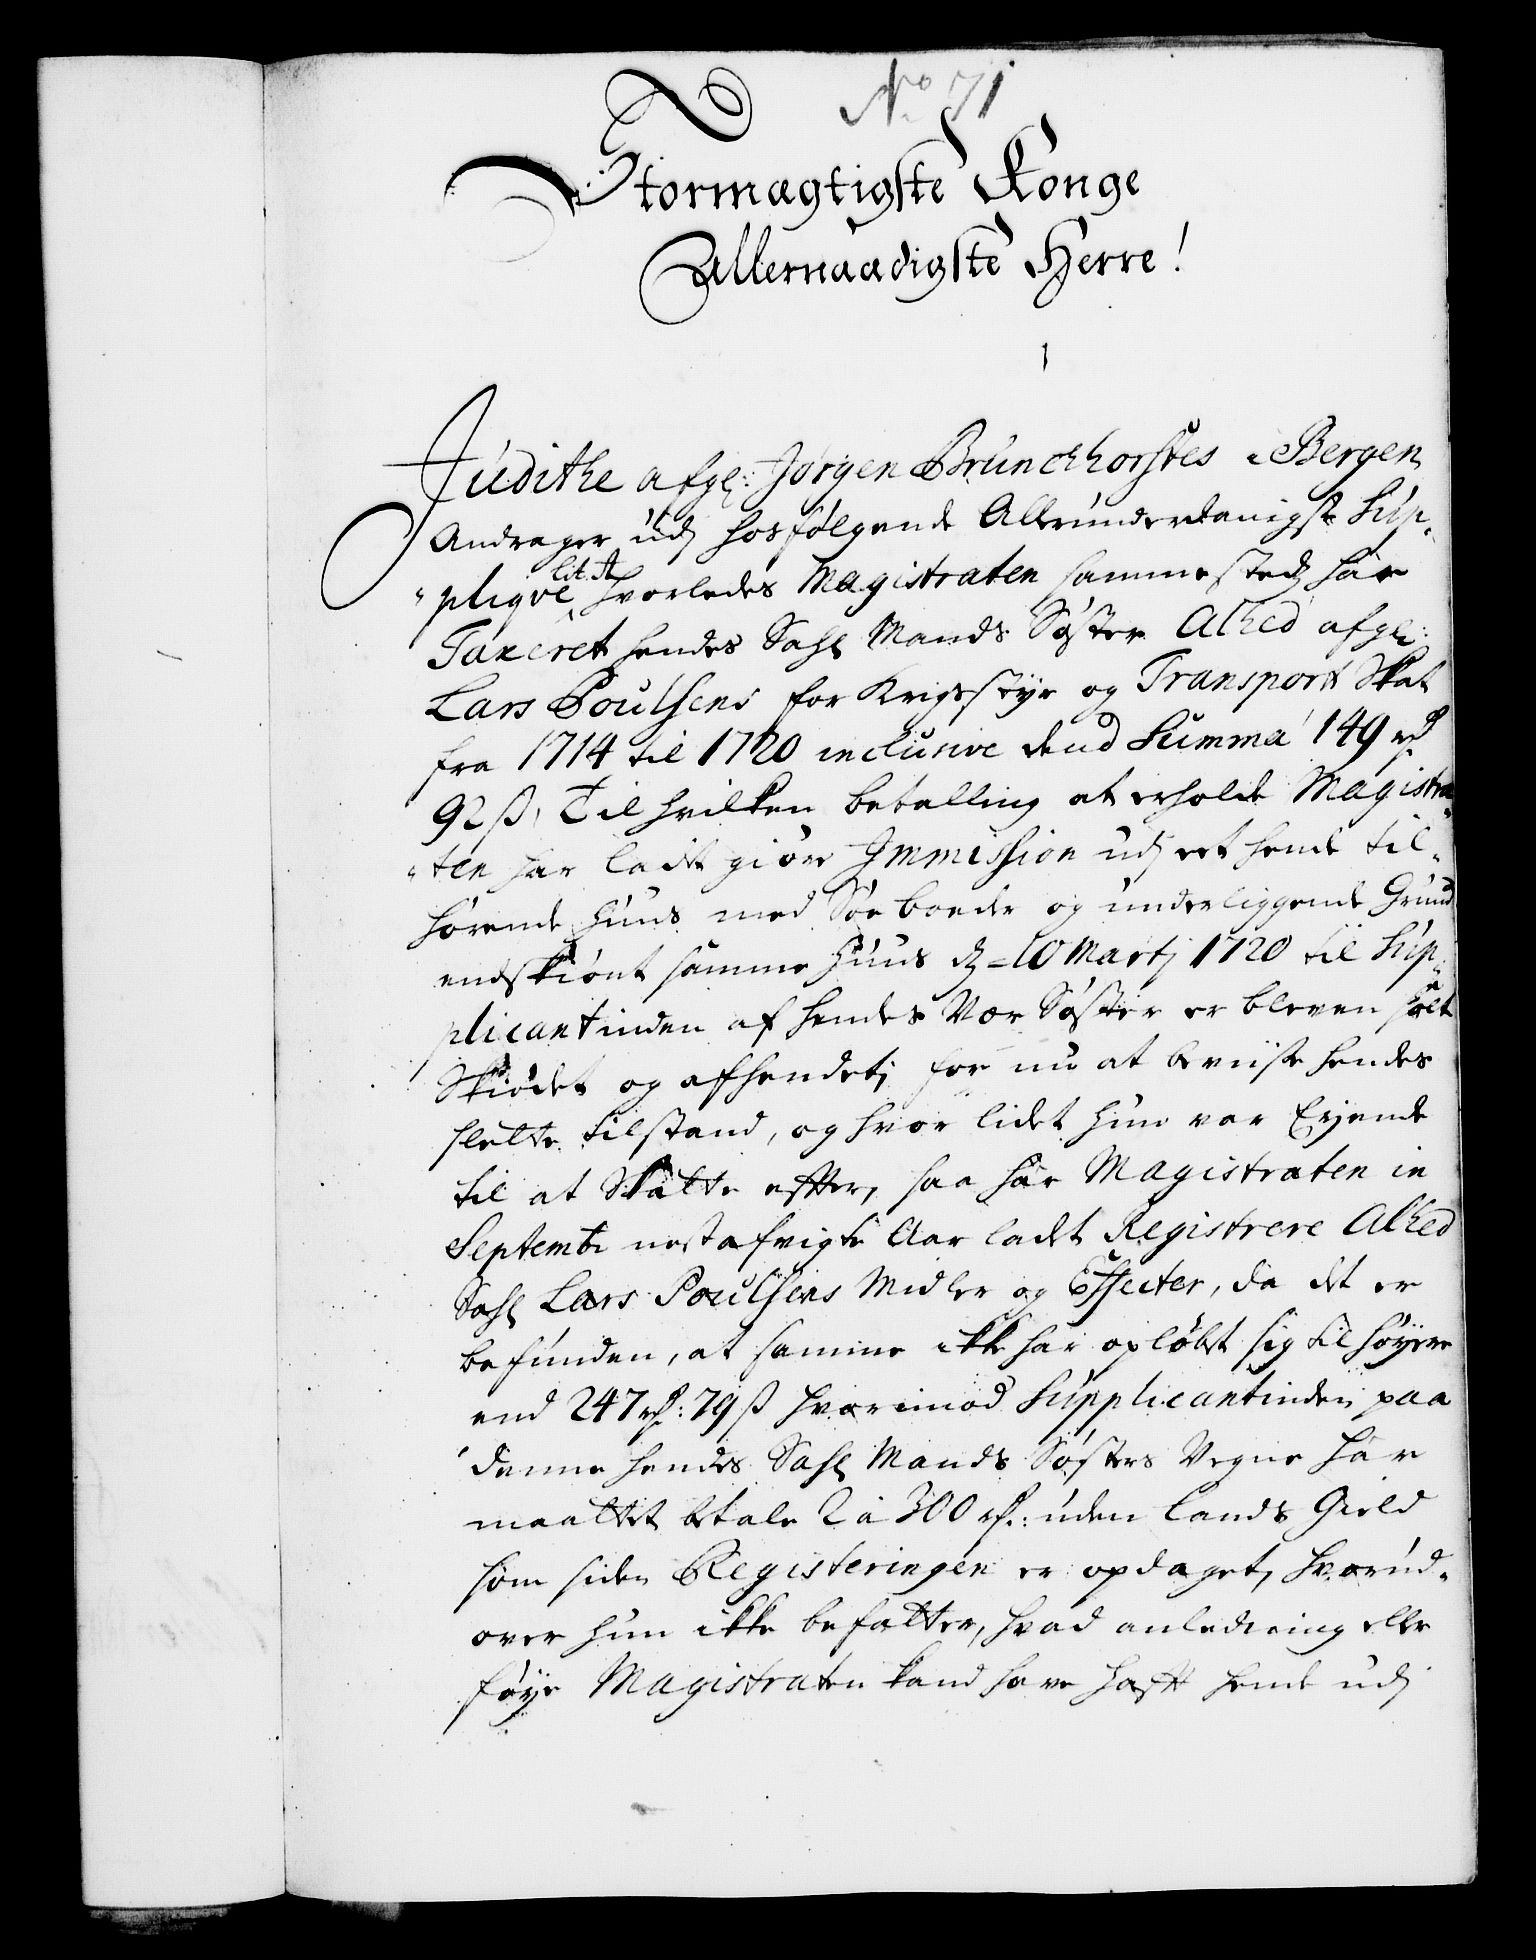 No 71
Stormægtigste Konge
Allernaadigste Herre!
Judithe afgl: Jørgen Brunckhorstes i Bergen
Andrager udj hosfølgende Allerunderdanigst Sup-
plique Lit. A hvorledes Magistraten sammesteds har
Taxeret hendes Sahl Mands Søster Alhed afgl:
Lars Poulsens for Krigsstyr og Transport Skat
fra 1714 til 1720 inclusive dend Summa 149 rd
92 ß, Til hvilken betalling at erholde Magistra-
ten har ladet giøre Immission udj eet hende til-
hørende Huus med Søe boeder og underliggende Grund
endskiønt samme Huus d. 10 Martj 1720 til Sup-
plicantinden af hendes Vær Søster er bleven solt
Skiødet og afhendet; for nu at beviise hendes
slette tilstand, og hvor lidet hun var Eyende
til at Skatte effter, saa har Magistraten in
Septembr nestafvigte Aar ladet Registrere Alhed
Sahl Lars Poulsens Midler og Effecter, da det er
befunden, at samme ikke har opløbet sig til høyere
end 247 rd: 79 ß hvorimod Supplicantinden paa
denne hendes Sahl Mands Søsters Vegne har
maattet betale 2 à 300 rd: uden lands Gield
som siden Registeringen er opdaget, hvorud-
over hun ikke befatter, hvad anledning eller
føye Magistraten kand have hafft hende udj